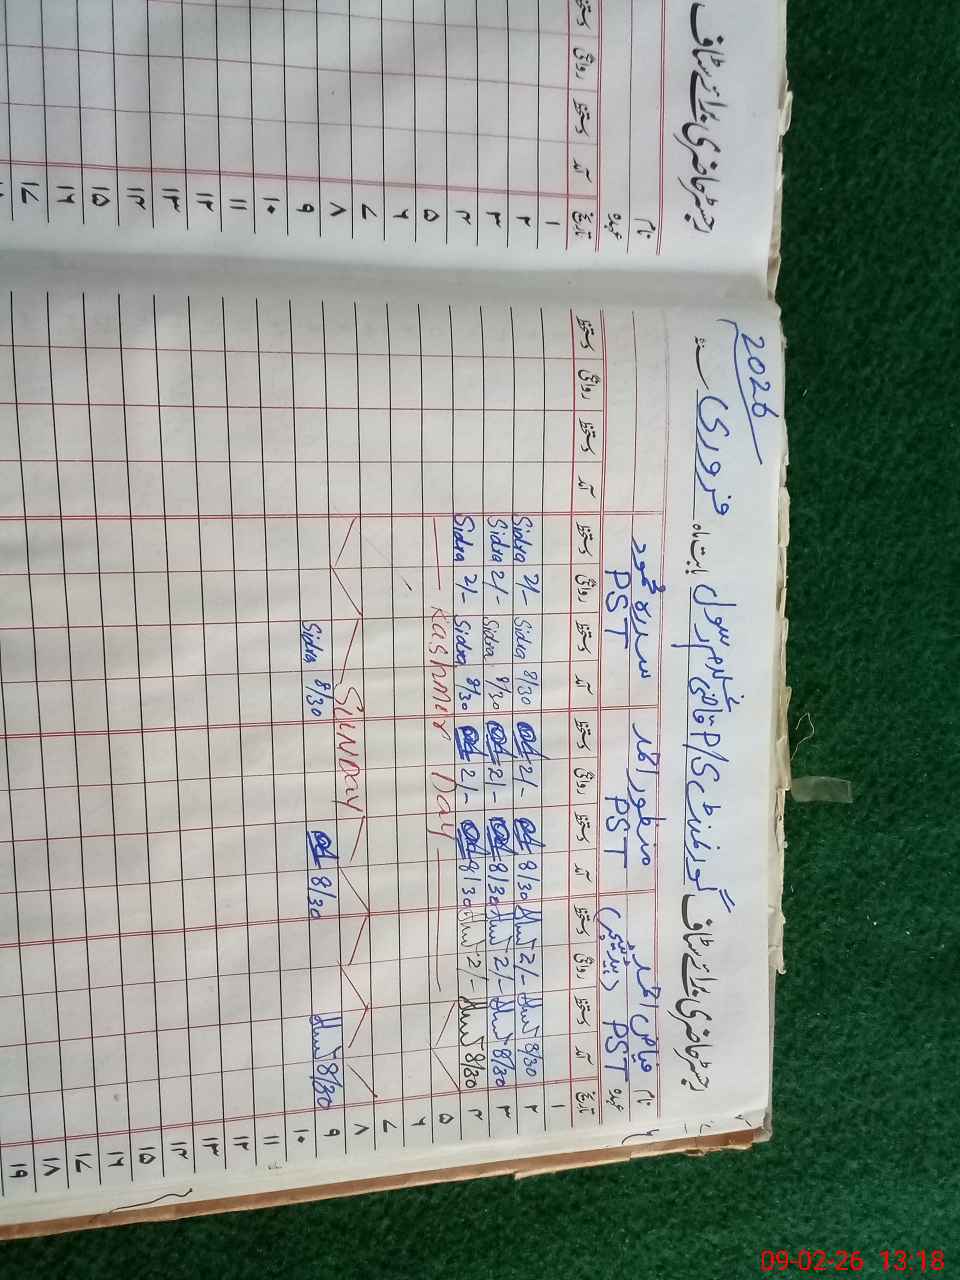 رجسٹر حاضری برائے سٹاف گورنمنٹ P/S قاضی غلام رسول بابت ماہ فروری سنہ 2026
نام فیاض احمد منظور احمد سدرہ محمود
عہدہ PST PST PST
تاریخ آمد دستخط روانگی دستخط آمد دستخط روانگی دستخط آمد دستخط روانگی دستخط آمد دستخط روانگی دستخط
۱
۲ 8/30 2/- 8/30 2/- 8/30 Sidra 2/- Sidra
۳ 8/30 2/- 8/30 2/- 8/30 Sidra 2/- Sidra
۴ 8/30 2/- 8/30 2/- 8/30 Sidra 2/- Sidra
۵ Kashmir Day
۶
۷
۸ SUNDAY
۹ 8/30 8/30 8/30 Sidra
۱۰
۱۱
۱۲
۱۳
۱۴
۱۵
۱۶
۱۷
۱۸
۱۹
رجسٹر حاضری برائے سٹاف
نام
عہدہ
تاریخ آمد دستخط روانگی دستخط
۱
۲
۳
۴
۵
۶
۷
۸
۹
۱۰
۱۱
۱۲
۱۳
۱۴
۱۵
۱۶
۱۷
09-02-26 13:18